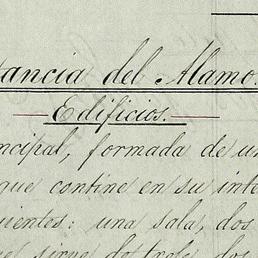 tancia del Alamo.
Edificios.
ncipal, formada de un
que contine en su inte
uientes: una sala, dos
ue sirve de troje, dos